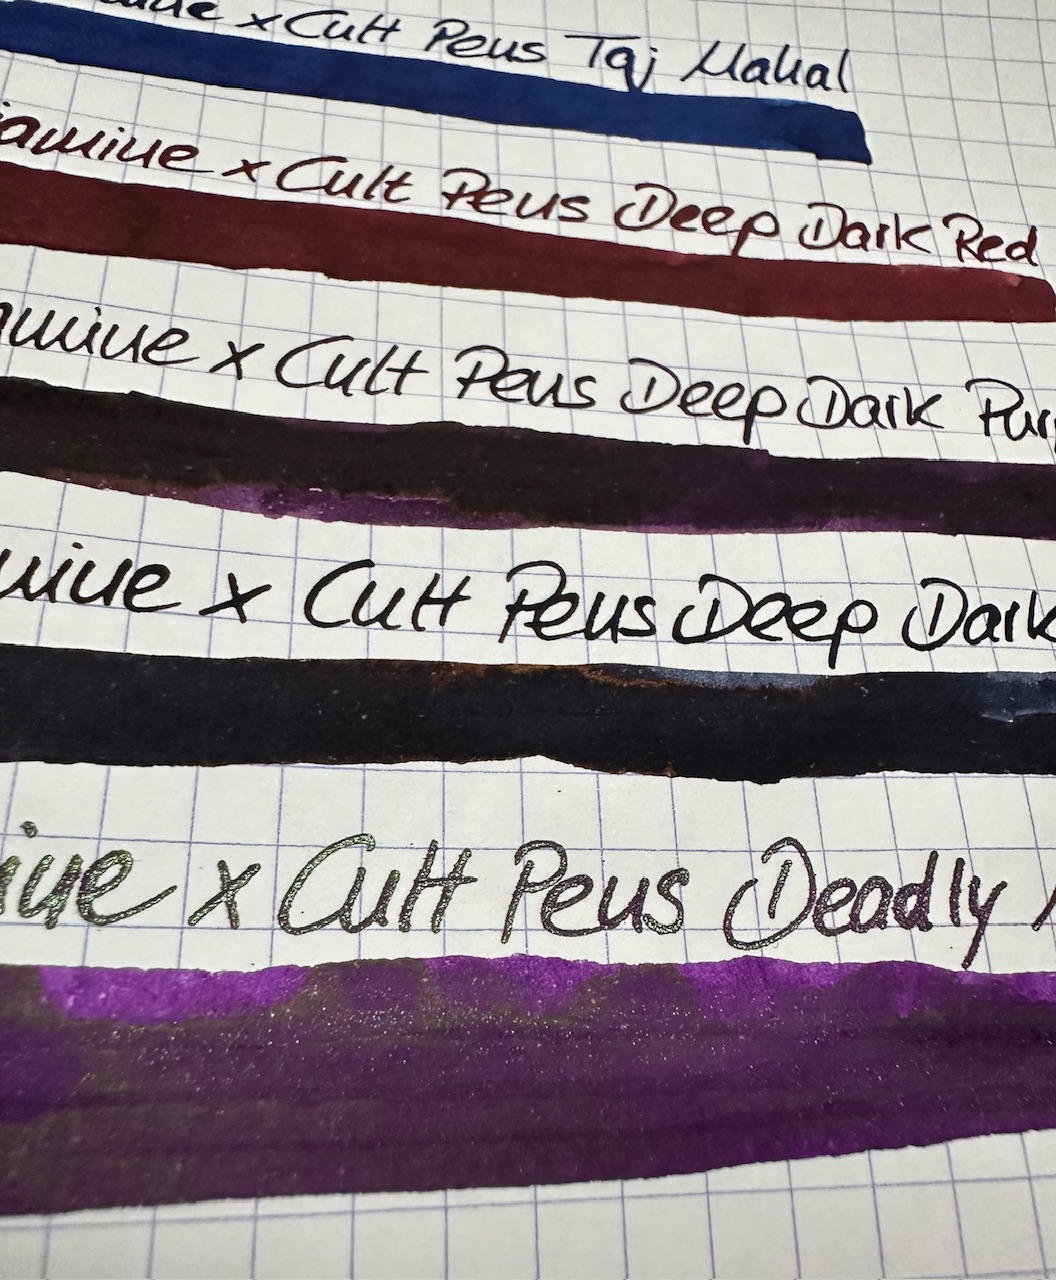 x Cult Pens Taj Mahal
iamine x Cult Pens Deep Dark Red
mine x Cult Pens Deep Dark Pur
mine x Cult Pens Deep Dark
ine x Cult Pens Deadly